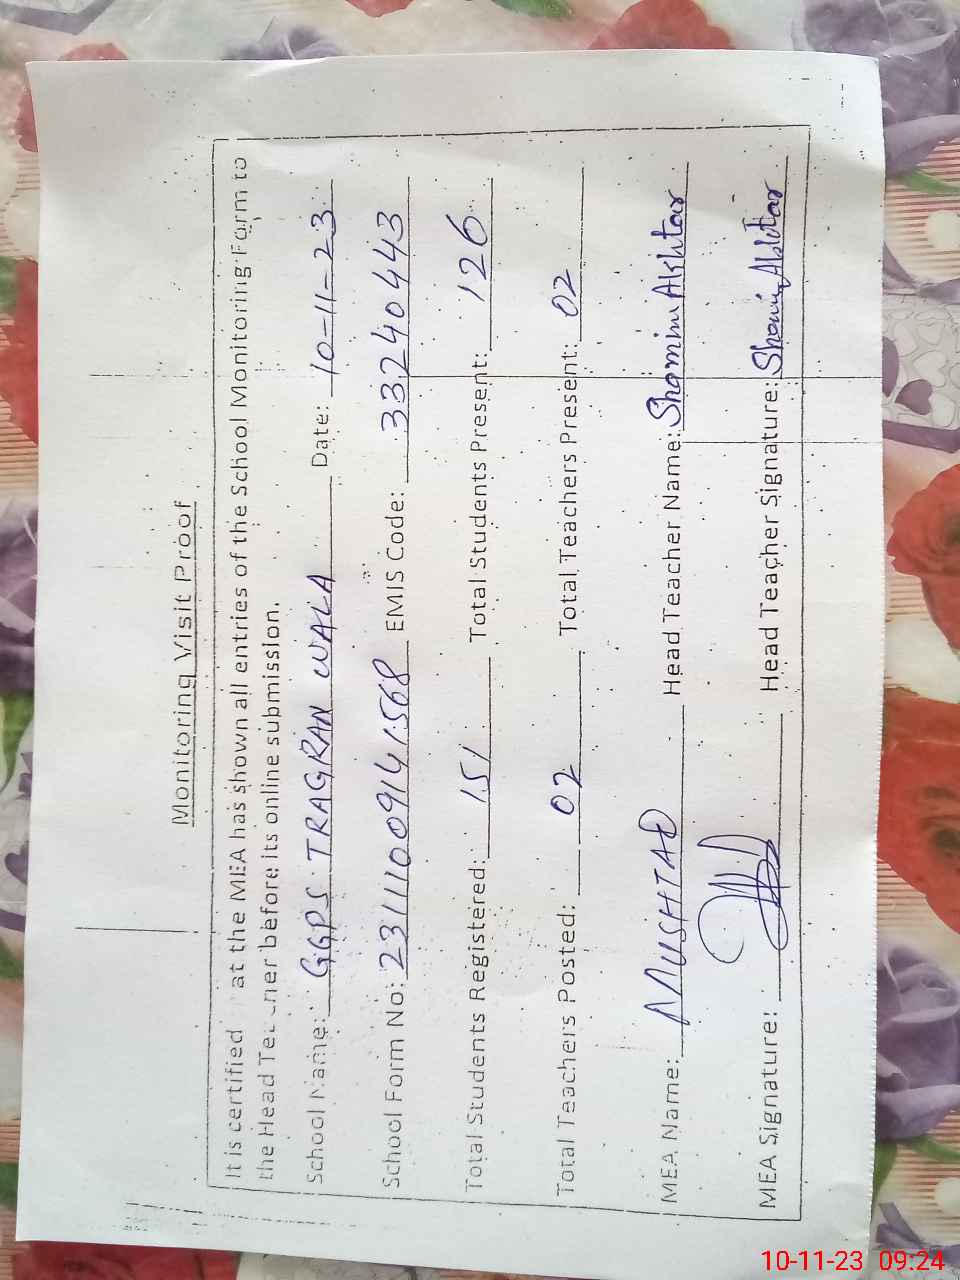 Monitoring Visit Proof
It is certified at the MEA has shown all entries of the School Monitoring Form to
the Head before its online submission.
School Name: GGPS TRAGRAN WALA Date: 10-11-23
School Form No: 23111009141568 EMIS Code: 33240443
Total Students Registered: 151 Total Students Present: 126
Total Teachers Posted: 02 Total Teachers Present: 02
MEA Name: MUSHTAQ Head Teacher Name: Shamim Akhtar
MEA Signature: Head Teacher Signature: Shamim Akhtar
10-11-23 09:24